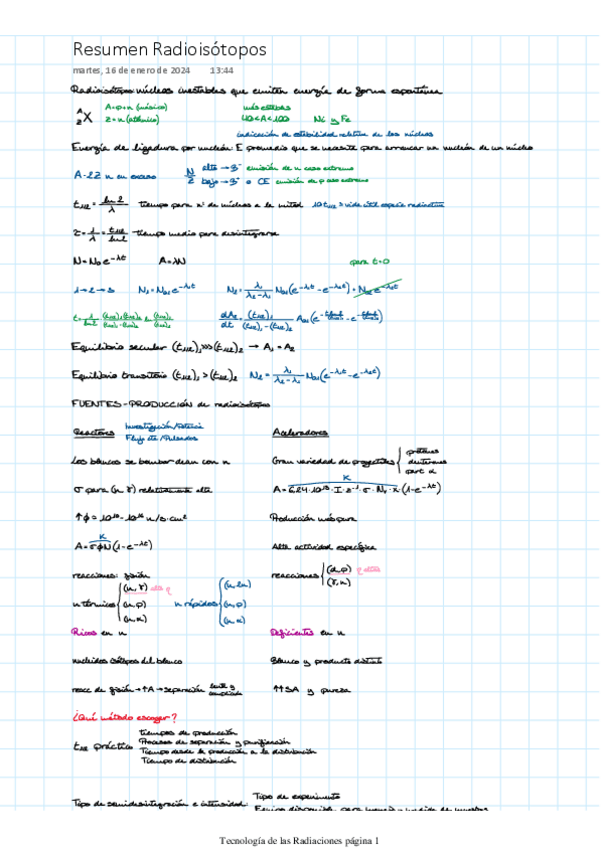 Resumen Radioisótopos
martes, 16 de enero de 2024 13:44
Radioisótopos núcleos inestables que emiten energía de forma espontánea
A=p+n (másico) más estables
X Z=n (atómico) 40<A<100 Ni y Fe
indicación de estabilidad relativa de los núcleos
Energía de ligadura por nucleón: E promedio que se necesita para arrancar un nucleón de un núcleo
A-2Z n en exceso N/Z alto → β⁻ emisión de n caso extremo
bajo → β⁺ o CE emisión de p caso extremo
t1/2 = ln2/λ tiempo para nº de núcleos a la mitad 10 t1/2 = vida útil especie radiactiva
τ = 1/λ = t1/2/ln2 tiempo medio para desintegrarse
N=N₀e^-λt A=λN para t=0
1→2→3 N₁=N₀₁e^-λ₁t N₂=λ₁/(λ₂-λ₁) N₀₁(e^-λ₁t - e^-λ₂t)+N₀₂e^-λ₂t
Equilibrio secular (t1/2)₁>>>(t1/2)₂ → A₁=A₂
Equilibrio transitorio (t1/2)₁>(t1/2)₂ N₂=λ₁/(λ₂-λ₁) N₀₁(e^-λ₁t - e^-λ₂t)
FUENTES-PRODUCCIÓN de radioisótopos
Reactores Investigación/Potencia Aceleradores
Flujo cte/Pulsados
Los blancos se bombardean con n Gran variedad de proyectiles protones deuterones part α
σ para (n,γ) relativamente alta A=6,24·10¹⁸·I·z⁻¹·σ·Nᵥ·x·(1-e^-λt)
K
↑ϕ= n/s·cm² Producción más pura
K
A=σϕN(1-e^-λt) Alta actividad específica
reacciones: fisión reacciones (d,p) σ alta
(γ,n)
n térmicos (n,γ) alta σ (n,p) (n,α) n rápidos (n,2n) (n,p) (n,α)
Ricos en n Deficientes en n
nucleidos isótopos del blanco Blanco y producto distinto
reacc de fisión → ↑A → separación lenta y complicada ↑↑SA y pureza
¿Qué método escoger?
tiempos de producción
t1/2 práctico Procesos de separación y purificación
Tiempo desde la producción a la distribución
Tiempo de distribución
Tipo de semidesintegración e intensidad: Tipo de experimento
Equipo disponible para
Tecnología de las Radiaciones página 1